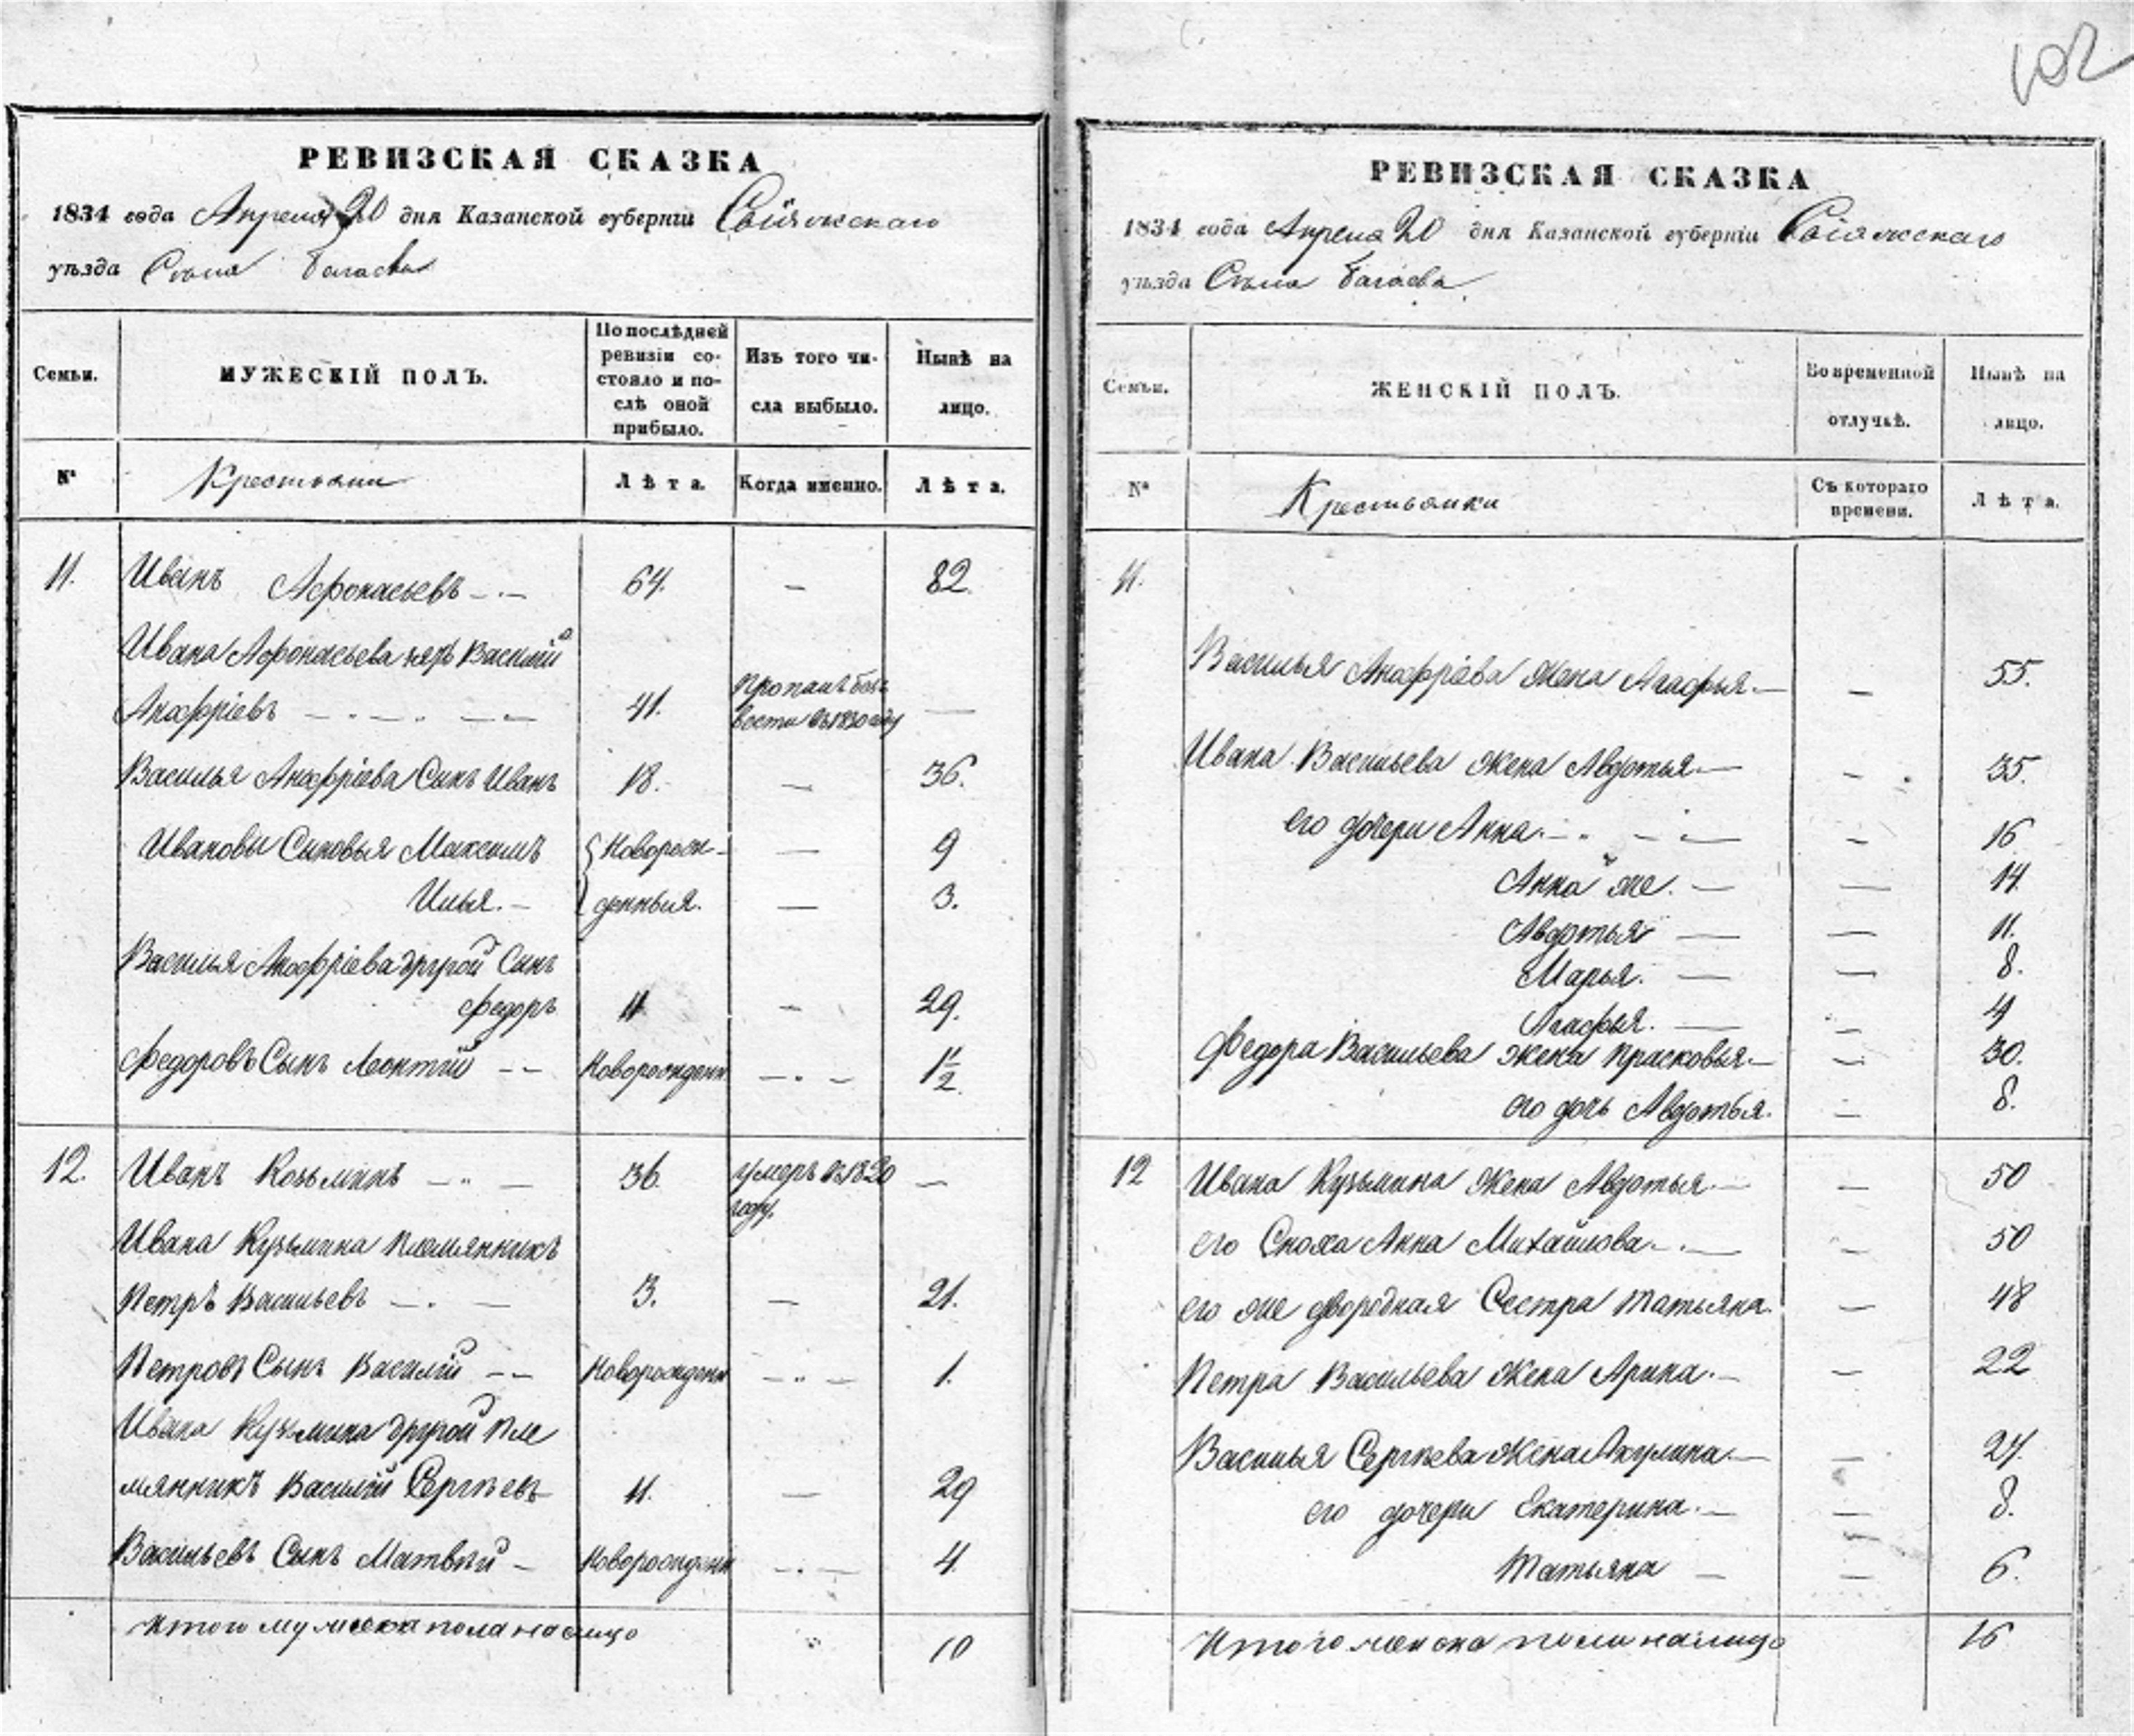 102
РЕВИЗСКАЯ СКАЗКА
1834 года Апреля 20 дня Казанской губерніи Свіяжскаго
уѣзда Села Багаева
Семьи.
МУЖЕСКІЙ ПОЛЪ.
По послѣдней ревизіи со-
стояло и по-
слѣ оной
прибыло.
Изъ того чи-
сла выбыло.
Нынѣ на
лицо.
№
Крестьяни
Лѣта.
Когда именно.
Лѣта.
11. Иванъ Афонасьевъ 64. — 82.
Ивана Афонасьева Василий
Анофріевъ 41. Пропалъ безъ вести въ 1830 году —
Василья Анофріева Сынъ Иванъ 18. — 36.
Ивановы Сыновья Максимъ Новорож- — 9
Илья. — денныя. — 3.
Василья Анофріева другой Сынъ
Федоръ 11 — 29.
Федоровъ Сынъ Леонтій — Новорожденн — 1 1/2
12. Иванъ Козьминъ — 36. умеръ въ 1820 году. —
Ивана Кузьмина племянникъ
Петръ Васильевъ — 3. — 21.
Петровъ Сынъ Василій — Новорожденн — 1.
Ивана Кузьмина другой пле
мянникъ Василій Сергѣевъ 11. — 29
Васильевъ Сынъ Матвѣй — Новорожденн — 4.
Итого мужеска пола налицо 10
РЕВИЗСКАЯ СКАЗКА
1834 года Апреля 20 дня Казанской губерніи Свіяжскаго
уѣзда Села Багаева
Семьи.
ЖЕНСКІЙ ПОЛЪ.
Во временной
отлучкѣ.
Нынѣ на
лицо.
№
Крестьянки
Съ котораго
времени.
Лѣта.
11.
Василья Анофріева Жена Агафья. — 55.
Ивана Васильева Жена Авдотья — 35.
его дочери Анна. — 16
Анна же. — 14.
Авдотья — 11.
Марья. — 8.
Агафья. — 4
Федора Васильева Жена Прасковья. — 30.
его дочь Авдотья. — 8.
12 Ивана Кузьмина Жена Авдотья. — 50
его Сноха Анна Михайлова. — 50
его же двородная Сестра Татьяна. — 48
Петра Васильева Жена Арина. — 22
Василья Сергѣева Жена Акулина. — 24.
его дочери Екатерина. — 8.
Татьяна — 6.
Итого женска пола налицо 16